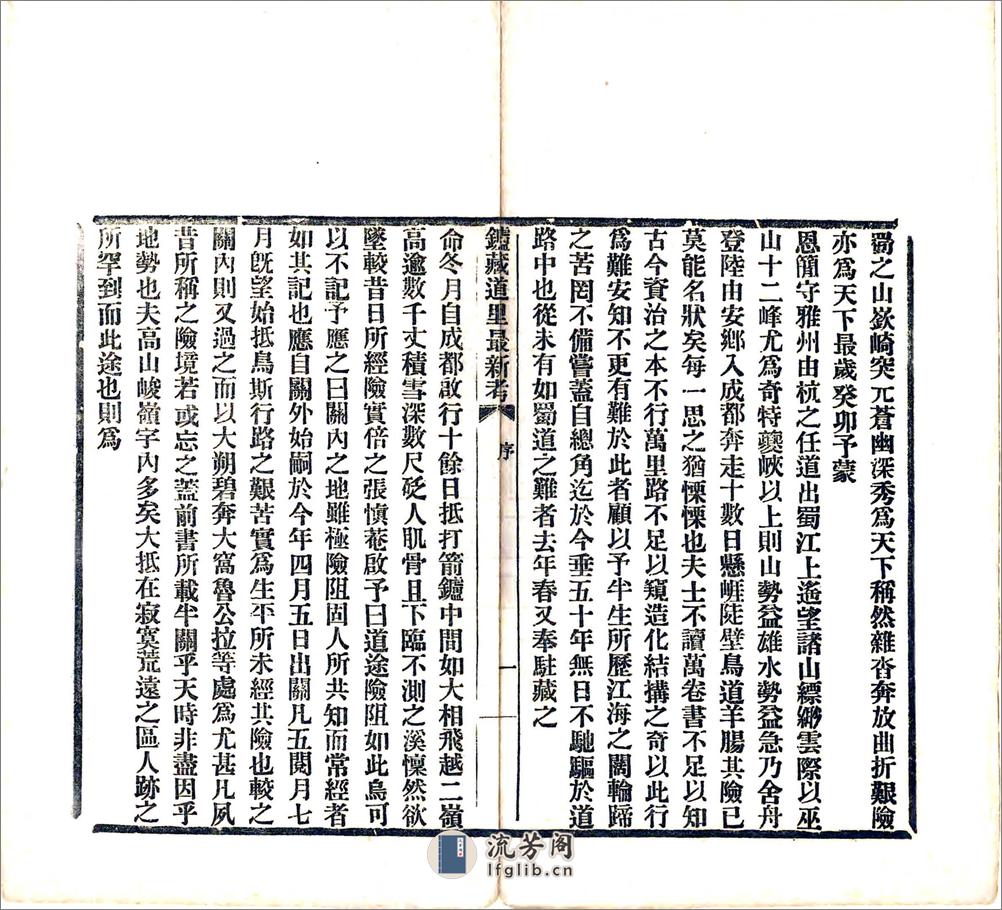 蜀之山嶔崎突兀蒼幽深秀爲天下稱然雜沓奔放曲折艱險
亦爲天下最歲癸卯予蒙
恩簡守雅州由杭之任道出蜀江上遙望諸山縹緲雲際以巫
山十二峰尤爲奇特夔峽以上則山勢益雄水勢益急乃舍舟
登陸由安鄉入成都奔走十數日懸崕陡壁鳥道羊腸其險已
莫能名狀矣每一思之猶慄慄也夫士不讀萬卷書不足以知
古今資治之本不行萬里路不足以窺造化結搆之奇以此行
爲難安知不更有難於此者顧以予半生所歷江海之闊輪蹄
之苦罔不備嘗蓋自總角迄於今垂五十年無日不馳驅於道
路中也從未有如蜀道之難者去年春又奉駐藏之
鑪藏道里最新考
序
一
命冬月自成都啟行十餘日抵打箭鑪中間如大相飛越二嶺
高逾數千丈積雪深數尺砭人肌骨且下臨不測之溪懍然欲
墜較昔日所經險實倍之張慎菴啟予曰道途險阻如此烏可
以不記予應之曰關內之地雖極險阻固人所共知而常經者
如其記也應自關外始嗣於今年四月五日出關凡五閱月七
月旣望始抵烏斯行路之艱苦實爲生平所未經其險也較之
關內則又過之而以大朔碧奔大窩魯公拉等處爲尤甚凡夙
昔所稱之險境若或忘之蓋前書所載半關乎天時非盡因乎
地勢也夫高山峻嶺宇內多矣大抵在寂寞荒遠之區人跡之
所罕到而此途也則爲
流芳阁
lfglib.cn